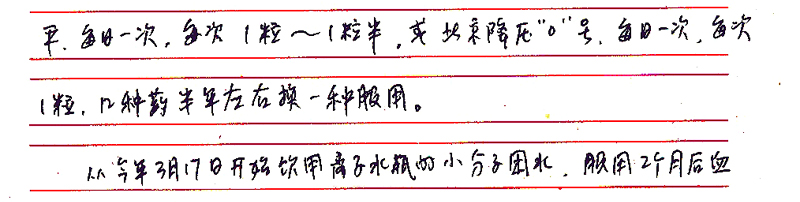 平，每日一次，每次1粒～1粒半，或北京降压"0"号，每日一次，每次
1粒，几种药半年左右换一种服用。
从今年3月17日开始饮用离子水瓶的小分子团水，服用2个月后血